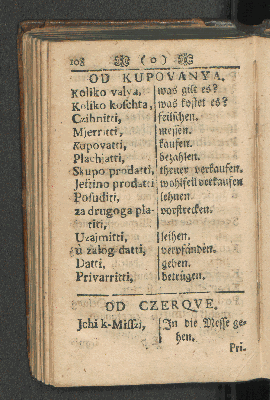 108 ( o )
OD KUPOVANYA.
Koliko valya, was gilt es?
Koliko koschta, was kostet es?
Czihnitti, feilschen.
Mjerritti, messen.
Kupovatti, kaufen.
Plachjatti, bezahlen.
Skupo prodatti, theuer verkaufen.
Jeftino prodatti wohlfeil verkaufen
Posuditi, lehnen.
za drugoga pla- vorstrecken.
titi,
Uzajmitti, leihen.
u zalog datti, verpfänden.
Datti, geben.
Privarritti, betrügen.
OD CZERQVE.
Jchi k-Missi, In die Messe ge-
hen.
Pri.